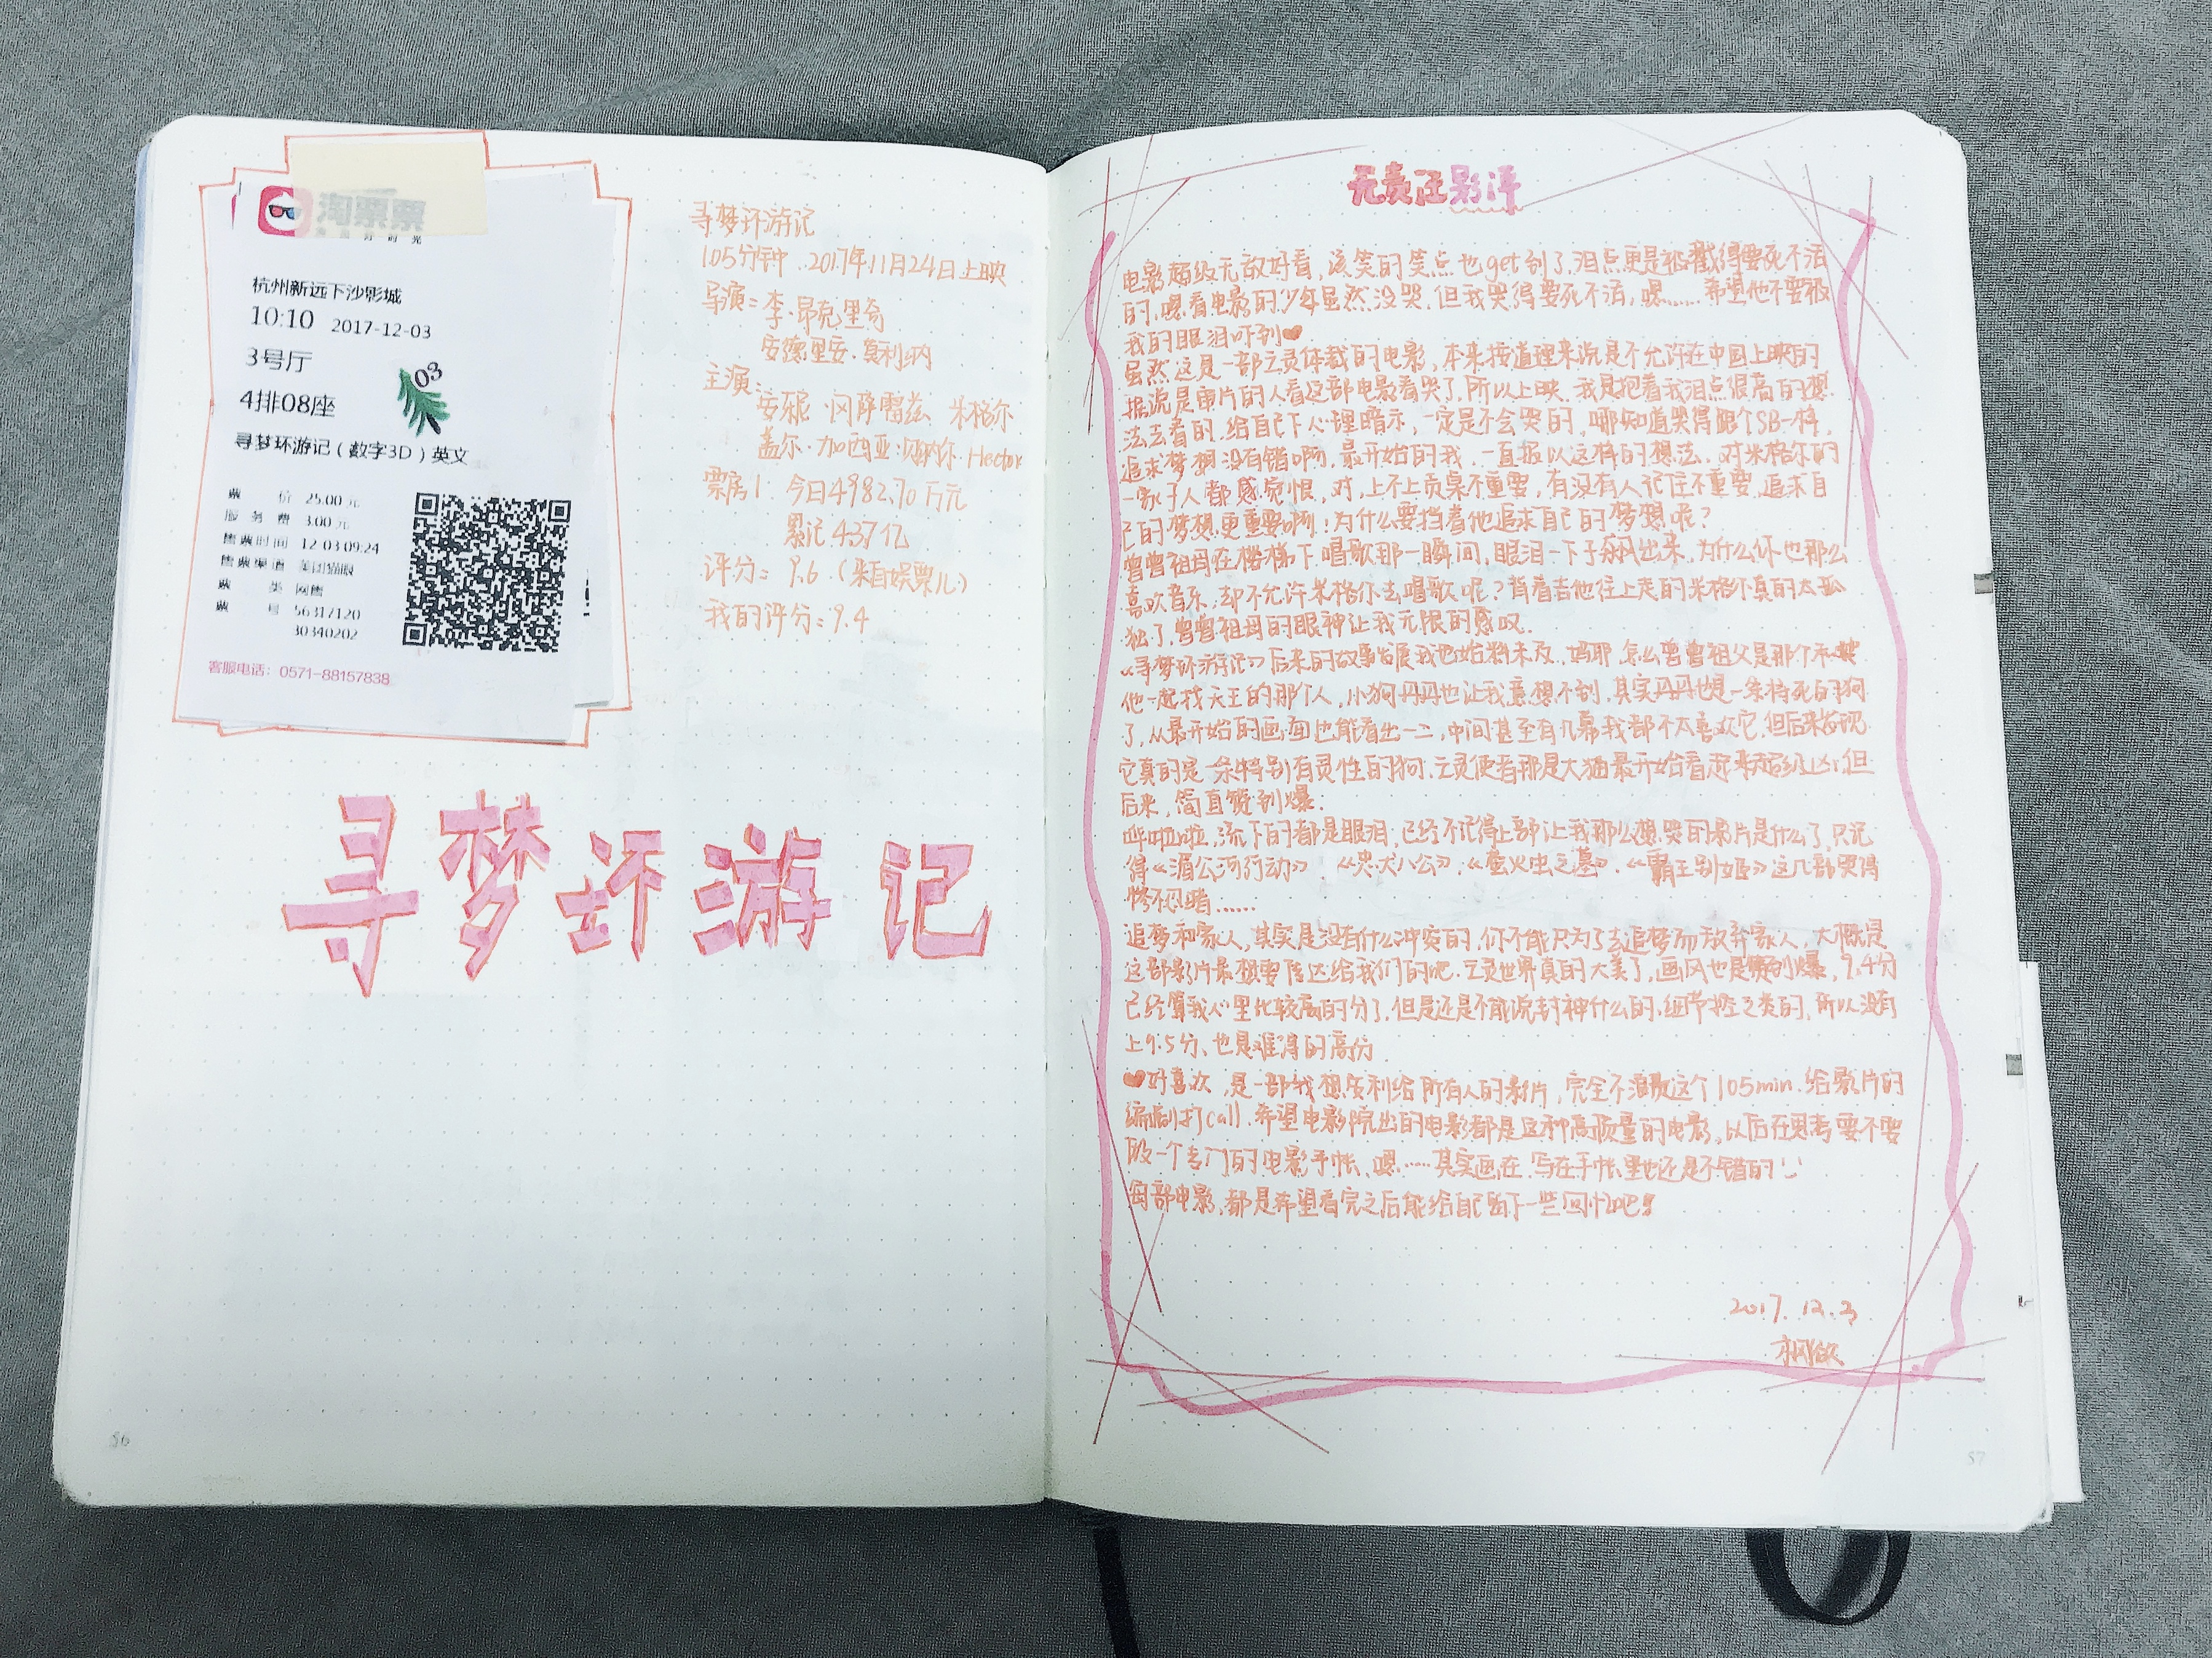 淘票票
杭州新远下沙影城
10:10 2017-12-03
3号厅
03
4排08座
寻梦环游记（数字3D）英文
票 价 25.00元
服务费 3.00元
售票时间 12-03 09:24
售票渠道 美团猫眼
票 类 网售
票 号 56317120
30340202
客服电话：0571-88157838
寻梦环游记
105分钟．2017年11月24日上映
导演：李·昂克里奇
安德里安·莫利纳
主演：安东尼·冈萨雷兹 米格尔
盖尔·加西亚·贝纳尔·Hector
票房1：今日4982.70万元
累记4.37亿
评分：9.6（来自娱票儿）
我的评分：9.4
寻梦环游记
56
无责任影评
电影超级无敌好看，该笑的笑点也get到了，泪点更是被戳得要死不活
的，嗯看电影的少年虽然没哭，但我哭得要死不活，嗯……希望他不要被
我的眼泪吓到
虽然这是一部亡灵体裁的电影，本来按道理来说是不允许在中国上映的
据说是审片的人看这部电影看哭了，所以上映．我是抱着我泪点很高的想
法去看的，给自己下心理暗示，一定是不会哭的，哪知道哭得跟个SB一样，
追求梦想没有错啊，最开始的我，一直报以这样的想法．对米格尔的
一家子人都感觉恨，对，上不上贡桌不重要，有没有人记住不重要，追求自
己的梦想更重要啊！为什么要挡着他追求自己的梦想呢？
曾曾祖母在楼梯下唱歌那一瞬间，眼泪一下子飙出来，为什么你也那么
喜欢音乐，却不允许米格尔去唱歌呢？背着吉他往上走的米格尔真的太孤
独了，曾曾祖母的眼神让我无限的感叹．
《寻梦环游记》后来的故事发展我也始料未及，妈耶，怎么曾曾祖父是那个和
他一起找天王的那个人，小狗丹丹也让我意想不到，其实丹丹也是一条特死的狗
了，从最开始的画面也能看出一二，中间甚至有几幕我都不太喜欢它，但后来发现
它真的是一条特别有灵性的狗．亡灵使者那是大猫最开始看起来超级凶，但
后来，简直赞到爆．
哗啦啦，流下的都是眼泪，已经不记得上部让我那么想哭的影片是什么了，只记
得《湄公河行动》．《忠犬八公》．《萤火虫之墓》．《霸王别姬》这几部哭得
惨不忍睹……
追梦和家人，其实是没有什么冲突的，你不能只为了去追梦而放弃家人，大概是
这部影片最想要传达给我们的吧．亡灵世界真的太美了，画风也是赞到爆，9.4分
已经算我心里比较高的分了，但是还是不能说封神什么的，细节控之类的，所以没有
上9.5分、也是难得的高分．
对喜欢，是一部我想安利给所有人的影片，完全不浪费这个105min．给影片的
编剧打call．希望电影院出的电影都是这种高质量的电影，以后在思考要不要
做一个专门的电影手帐、嗯……其实画在、写在手帐里也还是不错的
每部电影，都是希望看完之后能给自己留下一些回忆吧！
2017.12.3
57